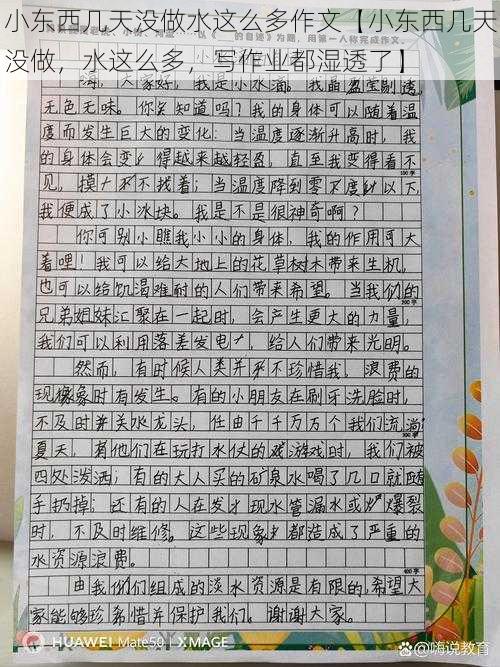 小东西几天没做水这么多作文【小东西几天
没做，水这么多，写作业都湿透了】
的自述》为题，用第一人称完成作文。
嗨，大家好，我是小水滴。我晶莹剔透，
无色无味。你知道吗？我的身体可以随着温
度而发生巨大的变化：当温度逐渐升高时，我
的身体会变得越来越轻盈，直至我变得看不
见，摸不找着；当温度降到零下度以下，
100字
我便成了小冰块。我是不是很神奇啊？
你可别小瞧我小小的身体，我的作用可大
着哩！我可以给大地上的花草树木带来生机，
也可以给饥渴难耐的人们带来希望。当我们的
兄弟姐妹汇聚在一起时，会产生更大的力量，
我们可以利用落差发电，给人们带来光明。
然而，有时候人类并不珍惜我，浪费的
现象时有发生。有的小朋友在刷牙洗脸时，
不及时关水龙头，任由千千万万个我们流淌；
夏天，有他们在玩打水仗的游戏时，我们被
四处泼洒；有的大人买的矿泉水喝了几口就随
手扔掉；还有的人在发现水管漏水或爆裂
时，不及时维修。这些现象都造成了严重的
水资源浪费。
400字
由我们组成的淡水资源是有限的，希望大
家能够珍惜并保护我们。谢谢大家。
HUAWEI Mate50 | XMAGE
@嗨说教育